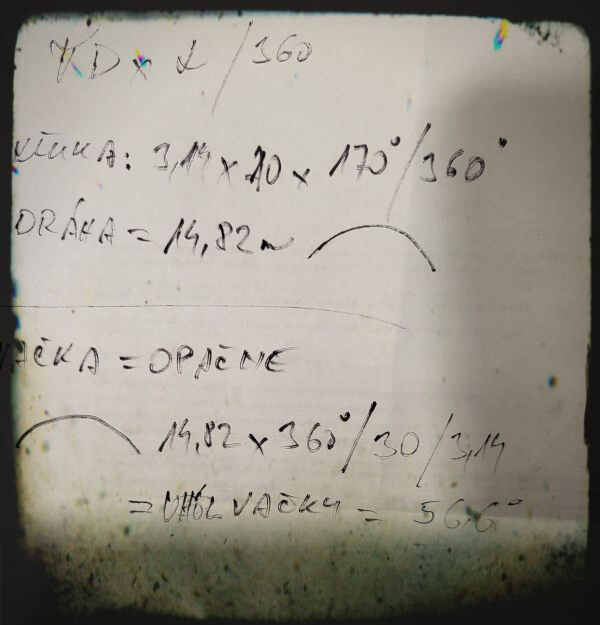 πD x α / 360
KĽUKA: 3,14 x 10 x 170° / 360°
DRÁHA = 14,82
VAČKA = OPAČNE
14,82 x 360° / 30 / 3,14
= UHOL VAČKY = 56,6°